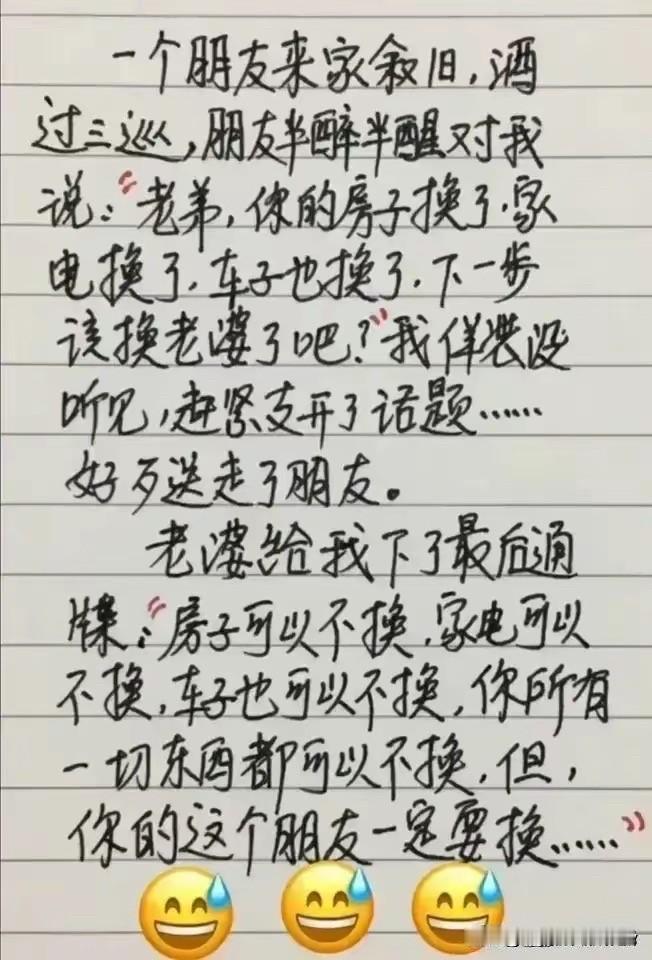 一个朋友来家叙旧，酒
过三巡，朋友半醉半醒对我
说：“老弟，你的房子换了，家
电换了，车子也换了，下一步
该换老婆了吧？”我佯装没
听见，赶紧支开了话题……
好歹送走了朋友。
老婆给我下了最后通
牒：“房子可以不换，家电可以
不换，车子也可以不换，你所有
一切东西都可以不换，但，
你的这个朋友一定要换……”